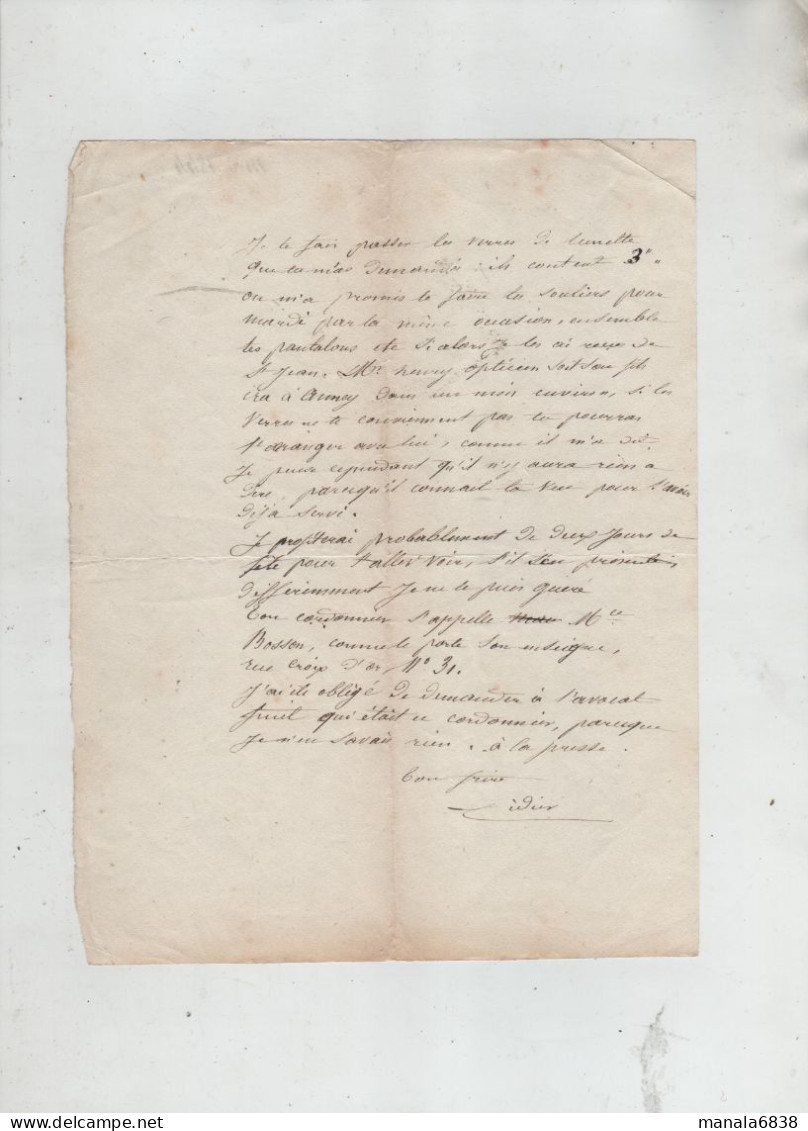 Je te fais passer les verres de lunette
que tu m'as demandés : ils coutent 3"
on m'a promis te faire les souliers pour
mardi par la même ocasion, ensemble
les pantalons etc si alors je les ai reçus de
St Jean. Mr henry opticien soit son fils
ira à Annecy dans un mois environ, si les
verres ne te conviennent pas tu pourras
t'aranger avec lui, comme il m'a dit.
Je pense cependant qu'il n'y aura rien a
dire, parsqu'il connait ta vue pour t'avoir
déja servi.
Je profiterai probablement de deux jours de
fête pour t'aller voir, s'il s'en présente,
différemment je ne le puis guère
Ton cordonnier s'appelle Mce
Bosson, comme le porte son enseigne,
rue Croix d'or, No 31.
J'ai été obligé de demander à l'avocat
qui était ce cordonnier, parsque
Je n'en savais rien. à la presse.
Ton frère
manala6838